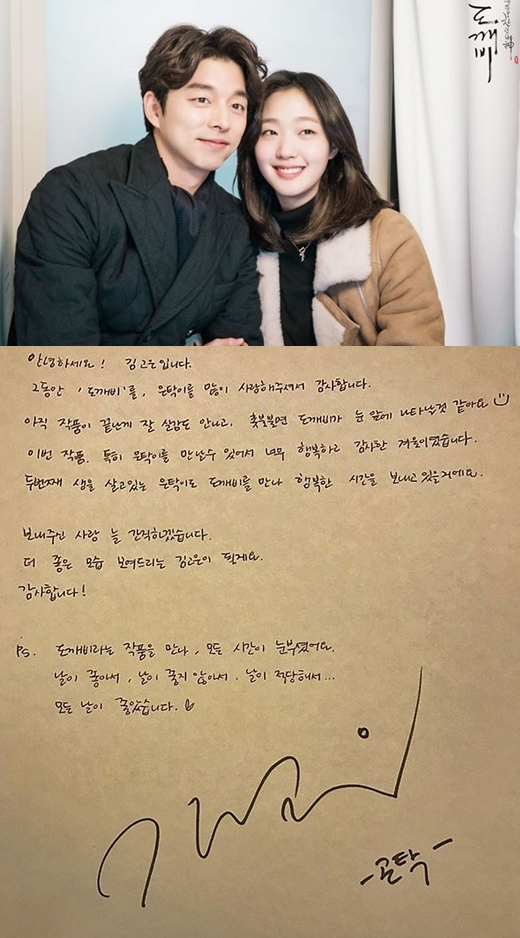 도깨비
안녕하세요! 김고은입니다.
그동안 '도깨비'를, 은탁이를 많이 사랑해주셔서 감사합니다.
아직 작품이 끝난게 잘 실감도 안나고, 촛불불면 도깨비가 눈 앞에 나타날것 같아요
이번 작품, 특히 은탁이를 만날수 있어서 너무 행복하고 감사한 겨울이였습니다.
두번째 생을 살고있는 은탁이도 도깨비를 만나 행복한 시간을 보내고 있을거에요.
보내주신 사랑 늘 간직하겠습니다.
더 좋은 모습 보여드리는 김고은이 될게요.
감사합니다!
PS. 도깨비라는 작품을 만나, 모든 시간이 눈부셨어요.
날이 좋아서, 날이 좋지 않아서. 날이 적당해서...
모든 날이 좋았습니다.